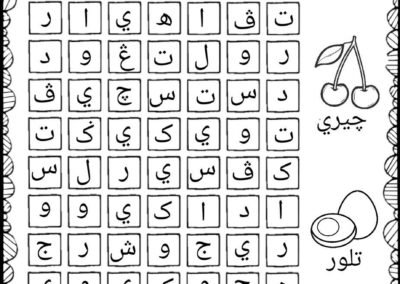 ت ڤ ا ه ي ا ر
ر و ل ت ڠ و د
د س ت س چ ي ڤ
چيري
ت و ي ک ي ݢ ت
ک ڤ س ي ر ل س
ا د ا ک ي و و
ر ي ج و ش ر ج
تلور